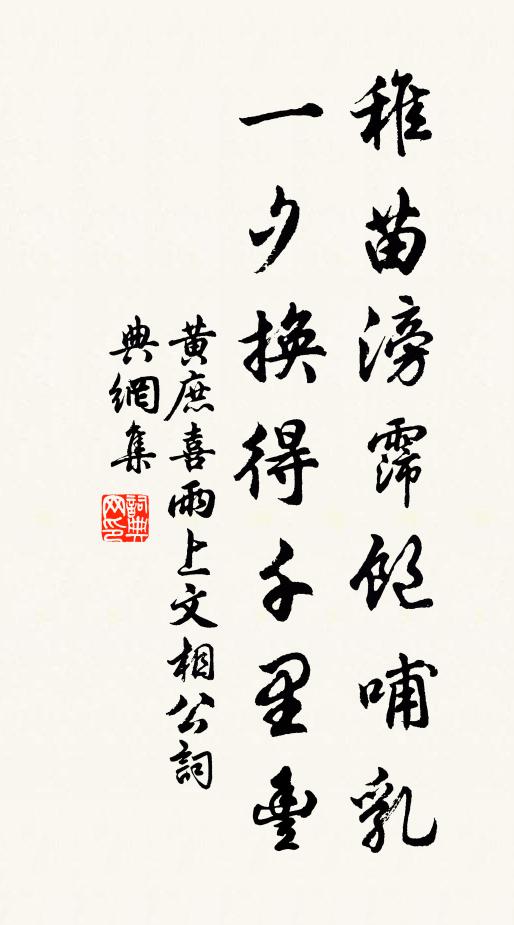 稚苗滂霈飽哺乳
一夕換得千里豊
黄庶喜雨上文相公詞
典網集
詞典網印